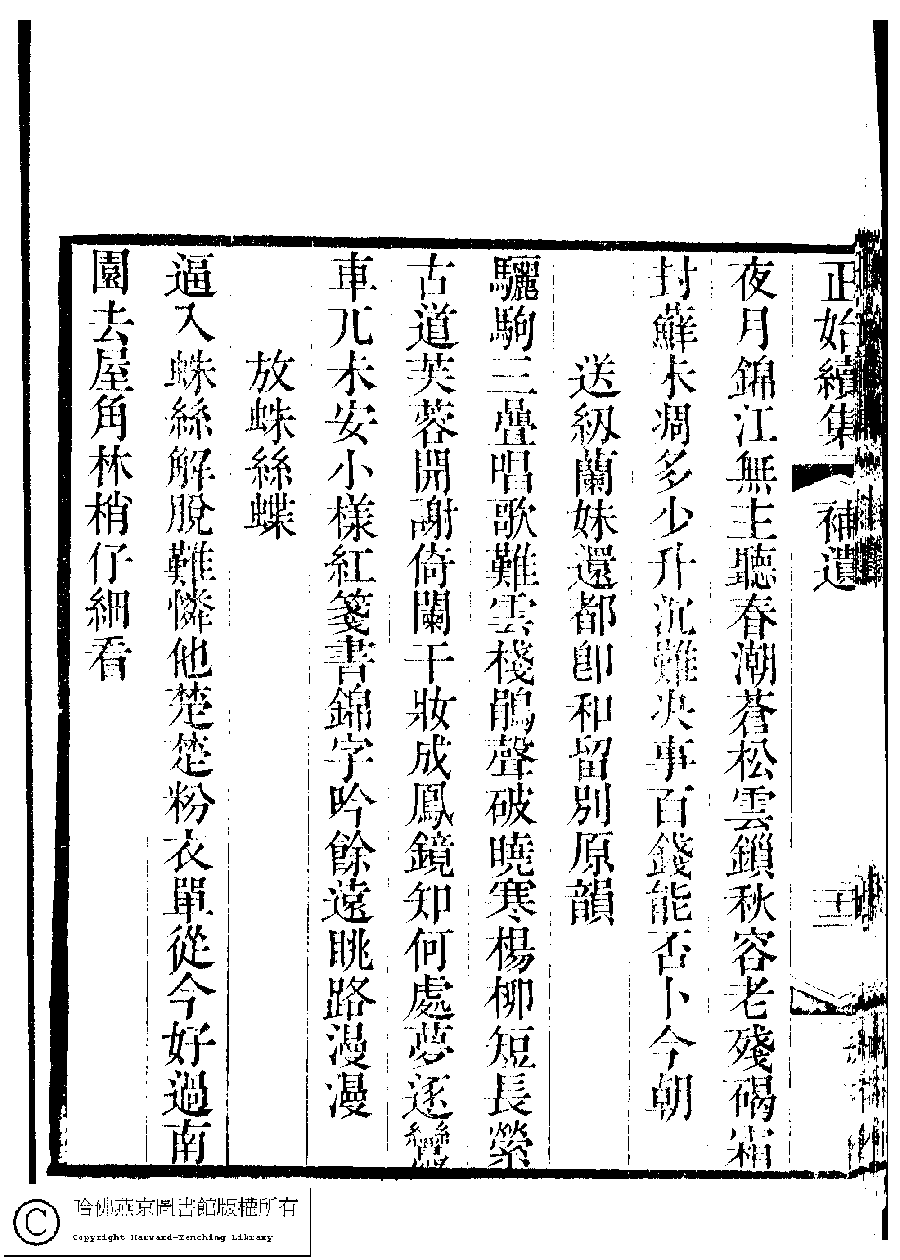 正始續集 補遺
夜月錦江無主聽春潮蒼松雲鎖秋容老殘碣霜
封蘚未凋多少升沉難决事百錢能否卜今朝
送紉蘭妹還都卽和留別原韻
驪駒三疊唱歌難雲棧鵑聲破曉寒楊柳短長縈
古道芙蓉開謝倚闌干妝成鳳鏡知何處夢逐鸞
車兀未安小樣紅箋書錦字吟餘遠眺路漫漫
放蛛絲蝶
逼入蛛絲解脫難憐他楚楚粉衣單從今好過南
園去屋角林梢仔細看
哈佛燕京圖書館版權所有
Copyright Harvard-Yenching Library